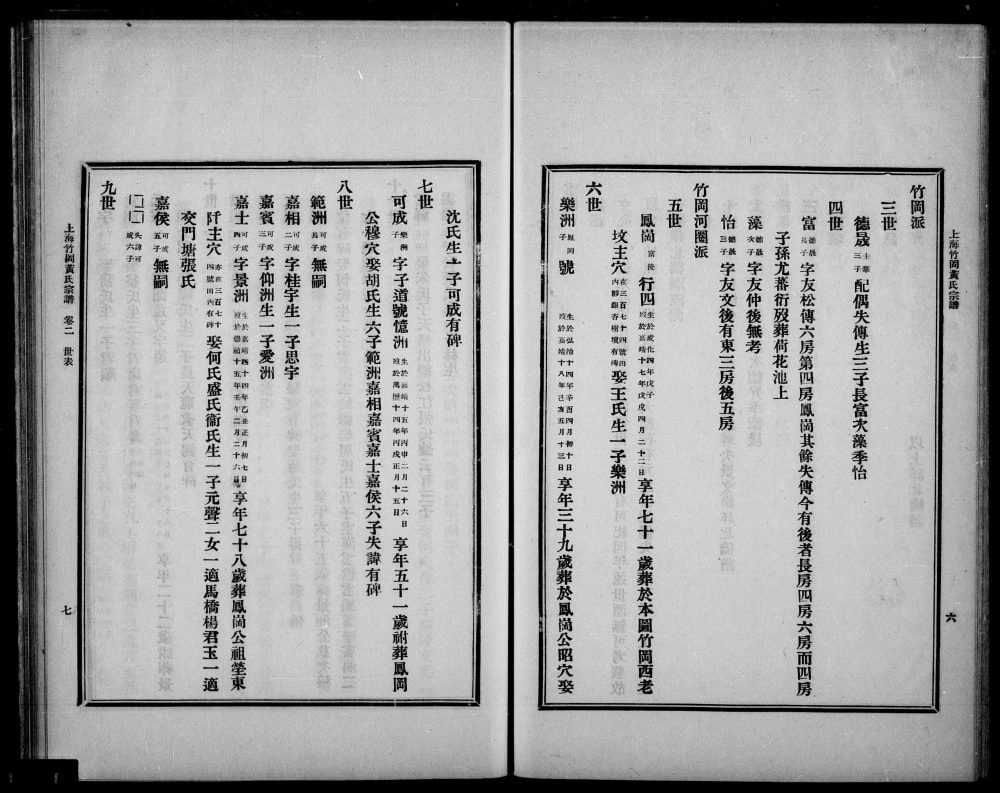 上海竹岡黃氏宗譜
六
竹岡派
三世
德晟 士華三子 配偶失傳生三子長富次藻季怡
四世
富 德晟長子 字友松傳六房第四房鳳崗其餘失傳今有後者長房四房六房而四房
子孫尤蕃衍歿葬荷花池上
藻 德晟次子 字友仲後無考
怡 德晟三子 字友文後有東三房後五房
竹岡河圈派
五世
鳳崗 富後 行四 生於成化四年戊子 歿於嘉靖十七年戊戌四月二十二日 享年七十一歲葬於本圖竹岡西老
坟主穴 在三百七十四號田內 娶王氏生一子樂洲
六世
樂洲 鳳岡子 號 生於弘治十四年辛酉四月初十日 歿於嘉靖十八年己亥五月十三日 享年三十九歲葬於鳳崗公昭穴娶
沈氏生一子可成有碑
七世
可成 樂洲子 字子道號憶洲 生於嘉靖十五年丙申二月二十六日 歿於萬歷十四年丙戌正月十五日 享年五十一歲祔葬鳳岡
公穆穴娶胡氏生六子範洲嘉相嘉賓嘉士嘉侯六子失諱有碑
八世
範洲 可成長子 無嗣
嘉相 可成二子 字桂宇生一子思宇
嘉賓 可成三子 字仰洲生一子愛洲
嘉士 可成四子 字景洲 生於嘉靖四十四年乙丑正月初七日 歿於崇禎十五年壬午二月二十六日 享年七十八歲葬鳳崗公祖塋東
阡主穴 亦在三百七十四號田內有碑 娶何氏盛氏衞氏生一子元聲二女一適馬橋楊君玉一適
交門塘張氏
嘉侯 可成五子 無嗣
□□ 失諱可成六子
九世
上海竹岡黃氏宗譜 卷二 世表
七